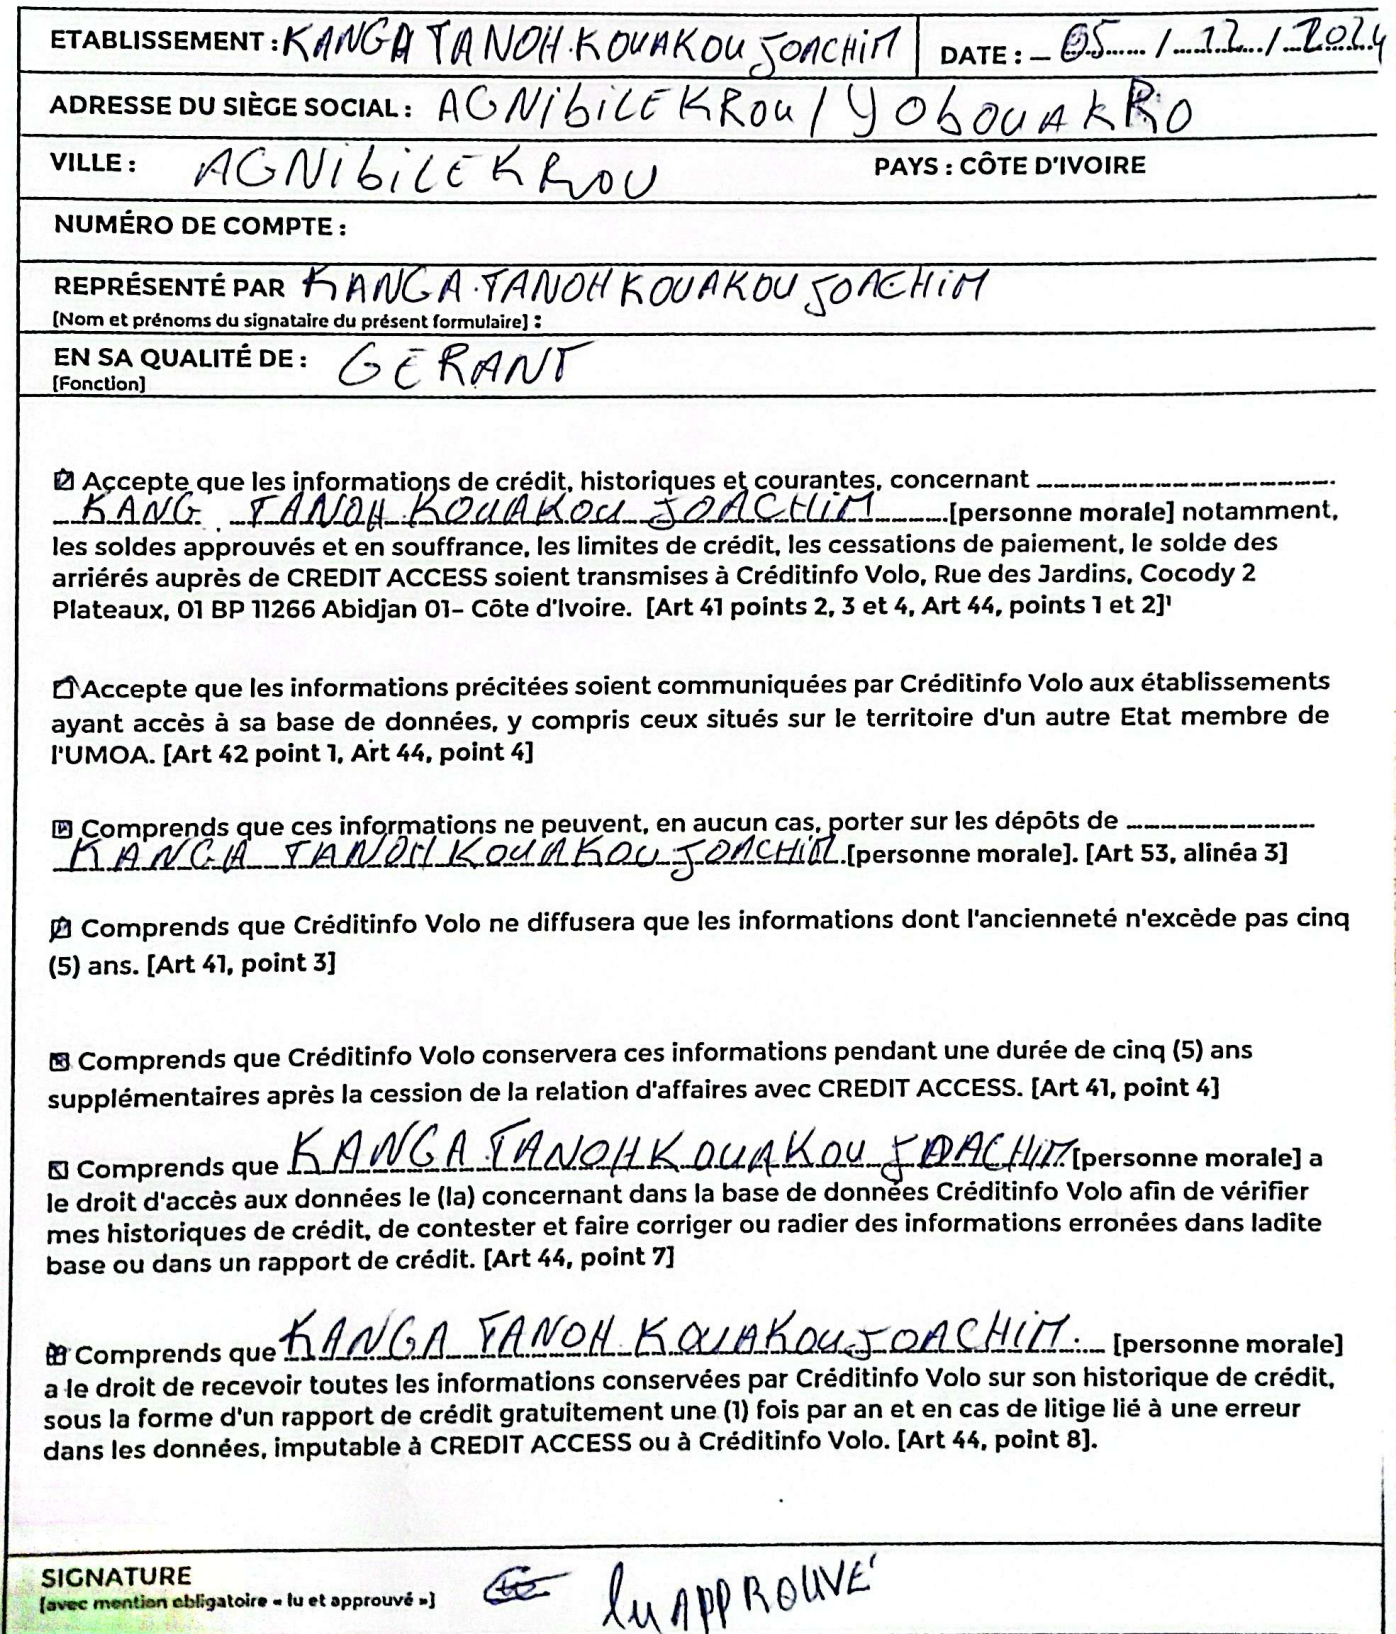 ETABLISSEMENT : KANGA TANOH KOUAKOU JOACHIM DATE : 05 / 12 / 2024
ADRESSE DU SIÈGE SOCIAL : AGNibiLEKROU / YObOUAKRO
VILLE : AGNIbiLEKROU PAYS : CÔTE D'IVOIRE
NUMÉRO DE COMPTE :
REPRÉSENTÉ PAR KANGA TANOH KOUAKOU JOACHIM
[Nom et prénoms du signataire du présent formulaire] :
EN SA QUALITÉ DE : GERANT
[Fonction]
☑ Accepte que les informations de crédit, historiques et courantes, concernant
KANG TANOH KOUAKOU JOACHIM [personne morale] notamment,
les soldes approuvés et en souffrance, les limites de crédit, les cessations de paiement, le solde des
arriérés auprès de CREDIT ACCESS soient transmises à Créditinfo Volo, Rue des Jardins, Cocody 2
Plateaux, 01 BP 11266 Abidjan 01– Côte d'Ivoire. [Art 41 points 2, 3 et 4, Art 44, points 1 et 2]¹
☑ Accepte que les informations précitées soient communiquées par Créditinfo Volo aux établissements
ayant accès à sa base de données, y compris ceux situés sur le territoire d'un autre Etat membre de
l'UMOA. [Art 42 point 1, Art 44, point 4]
☑ Comprends que ces informations ne peuvent, en aucun cas, porter sur les dépôts de
KANGA TANOH KOUAKOU JOACHIM [personne morale]. [Art 53, alinéa 3]
☑ Comprends que Créditinfo Volo ne diffusera que les informations dont l'ancienneté n'excède pas cinq
(5) ans. [Art 41, point 3]
☑ Comprends que Créditinfo Volo conservera ces informations pendant une durée de cinq (5) ans
supplémentaires après la cession de la relation d'affaires avec CREDIT ACCESS. [Art 41, point 4]
☑ Comprends que KANGA TANOH KOUAKOU JOACHIM [personne morale] a
le droit d'accès aux données le (la) concernant dans la base de données Créditinfo Volo afin de vérifier
mes historiques de crédit, de contester et faire corriger ou radier des informations erronées dans ladite
base ou dans un rapport de crédit. [Art 44, point 7]
☑ Comprends que KANGA TANOH KOUAKOU JOACHIM [personne morale]
a le droit de recevoir toutes les informations conservées par Créditinfo Volo sur son historique de crédit,
sous la forme d'un rapport de crédit gratuitement une (1) fois par an et en cas de litige lié à une erreur
dans les données, imputable à CREDIT ACCESS ou à Créditinfo Volo. [Art 44, point 8].
SIGNATURE
[avec mention obligatoire « lu et approuvé »] lu APPROUVÉ